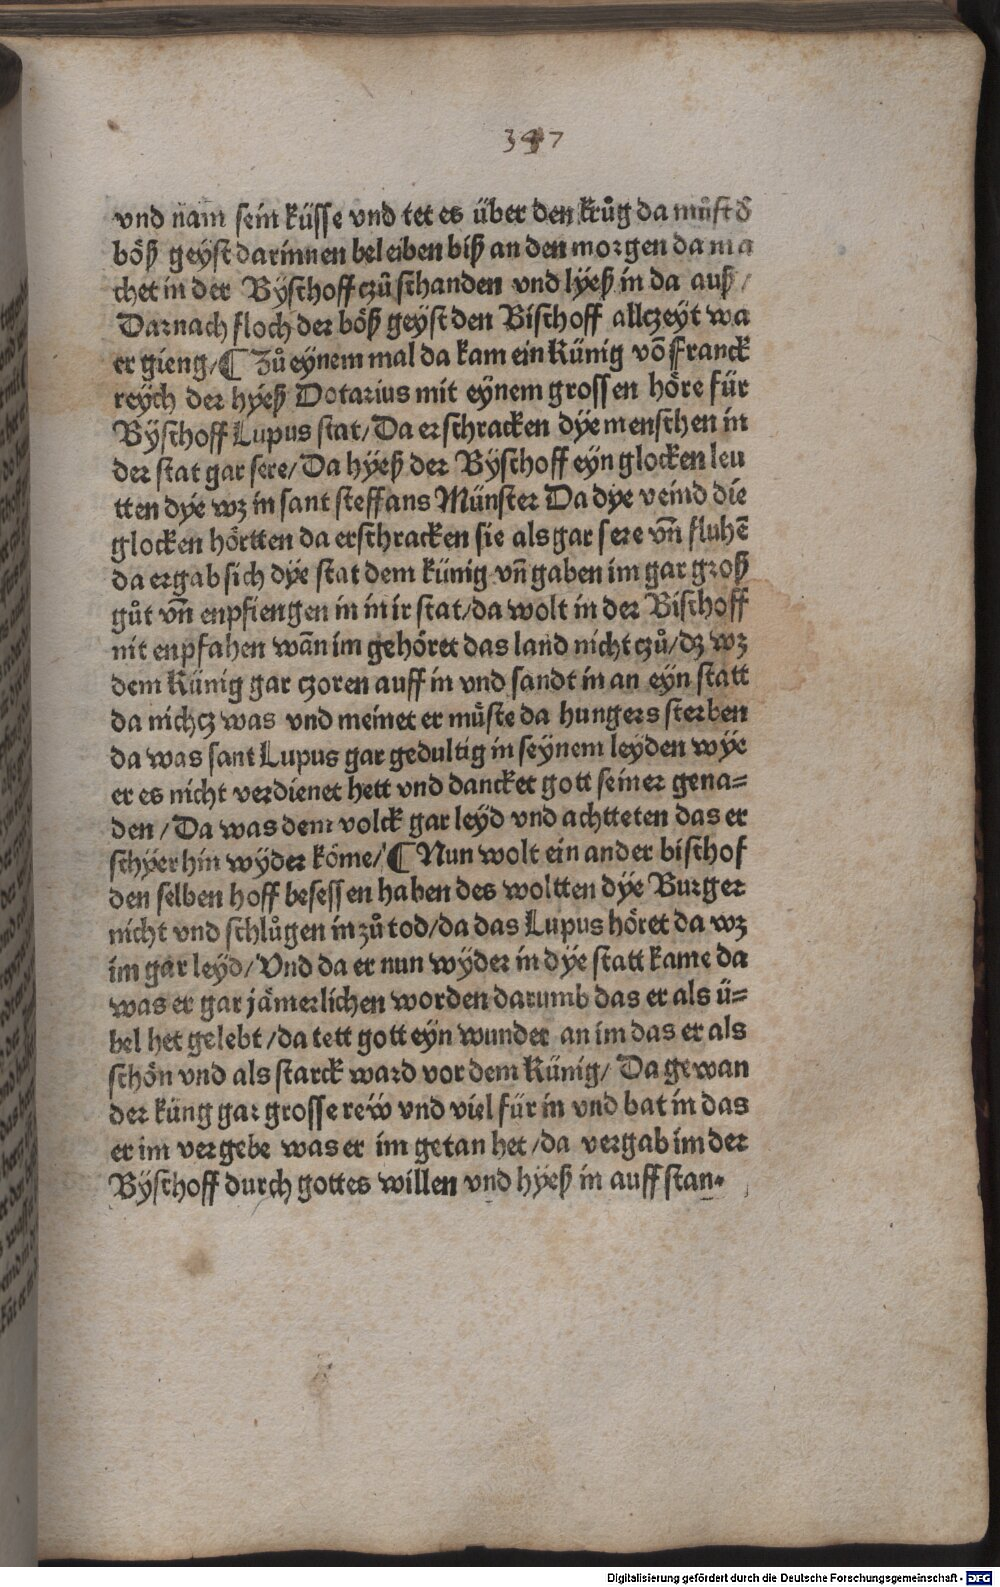 347
vnd nam sein küsse vnd tet es über den krůg da můst d̕
böß geyst darinnen beleiben biß an den morgen da ma
chet in der Bÿschoff czů schanden vnd lÿeß in da auß /
Darnach floch der böß geÿst den Bischoff allczeÿt wa
er gieng / ¶ Zů eÿnem mal da kam ein Künig võ Franck
reÿch der hÿeß Dotarius mit eÿnem grossen höre für
Bÿschoff Lupus stat / Da erschracken dÿe menschen in
der stat gar sere / Da hÿeß der Bÿschoff eÿn glocken leu
tten dÿe wz in sant steffans Münster Da dÿe veind die
glocken hörtten da erschracken sie als gar sere vñ fluhẽ
da ergab sich dÿe stat dem künig vñ gaben im gar groß
gůt vñ enpfiengen in in ir stat / da wolt in der Bischoff
nit enpfahen wañ im gehöret das land nicht czů / dz wz
dem Künig gar czoren auff in vnd sandt in an eÿn statt
da nichcz was vnd meinet er můste da hungers sterben
da was sant Lupus gar gedultig in seÿnem leyden wÿe
er es nicht verdienet hett vnd dancket gott seiner gena=
den / Da was dem volck gar leÿd vnd achtteten das er
schÿer hin wÿder köme / ¶ Nun wolt ein ander bischof
den selben hoff besessen haben des woltten dÿe Burger
nicht vnd schlůgen in zů tod / da das Lupus höret da wz
im gar leyd / Vnd da er nun wÿder in dÿe statt kame da
was er gar jämerlichen worden darumb das er als ü=
bel het gelebt / da tett gott eÿn wunder an im das er als
schön vnd als starck ward vor dem Künig / Da gewan
der küng gar grosse reẅ vnd viel für in vnd bat in das
er im vergebe was er im getan het / da vergab im der
Bÿschoff durch gottes willen vnd hÿeß in auff stan.
Digitalisierung gefördert durch die Deutsche Forschungsgemeinschaft - DFG